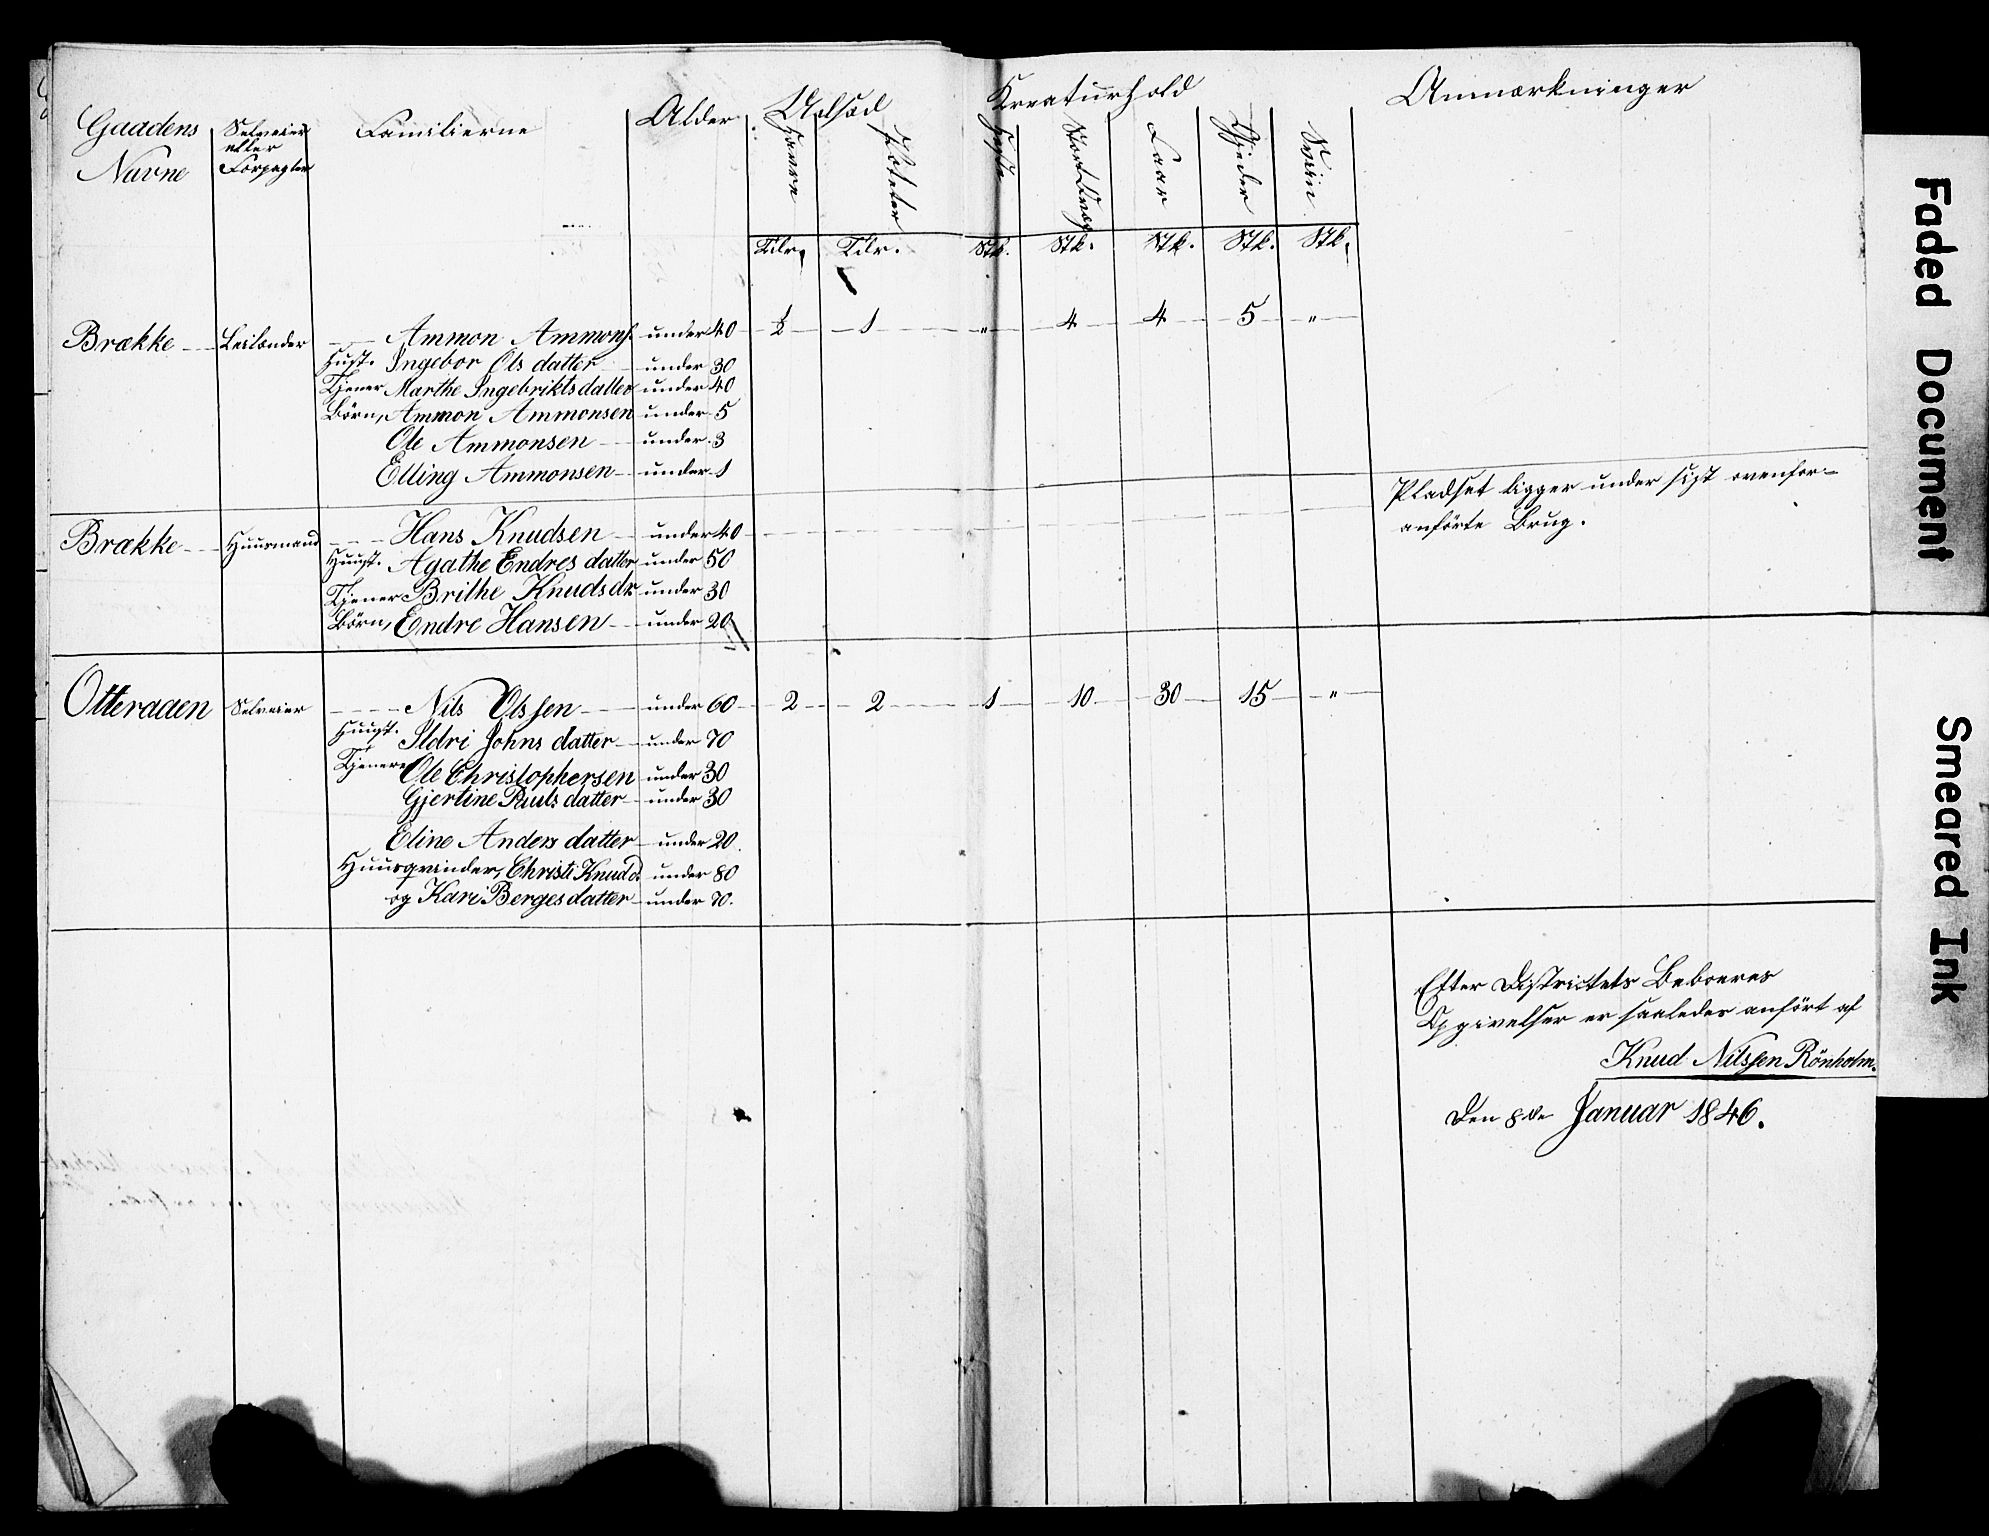 Gaadens Selveier Familierne Alder Udsæd Kreaturhold Anmærkninger
Navne eller Havre Poteter Heste Stort Qvæg Faar Gjeder Sviin
Forpagter
Tdr. Tdr. Stk. Stk. Stk. Stk. Stk.
Brække Leilænder Ammon Ammons. under 40 ½ 1 " 4 4 5 "
Hust. Ingebor Ols datter under 30
Tjener Marthe Ingebrikts datter under 40
Börn, Ammon Ammonsen under 5
Ole Ammonsen under 3
Elling Ammonsen under 1
Brække Huusmand Hans Knudsen under 40 Pladset ligger under sist ovenfor-
anförte Brug.
Huust. Agathe Endres datter under 50
Tjener Brithe Knudsdr under 30
Börn, Endre Hansen under 20
Otteraaen Selveier Nils Olssen under 60 2 2 1 10 30 15 "
Huust. Ildri Johns datter under 70
Tjenere Ole Christophersen under 30
Gjertine Pauls datter under 30
Eline Anders datter under 20.
Huusqvinder, Christi Knudd. under 80
og Kari Berges datter under 70.
Efter Districtets Beboeres
Opgivelser er saaledes anfört af
Knud Nilssen Rönholm.
Den 8de Januar 1846.
Faded Document
Smeared Ink